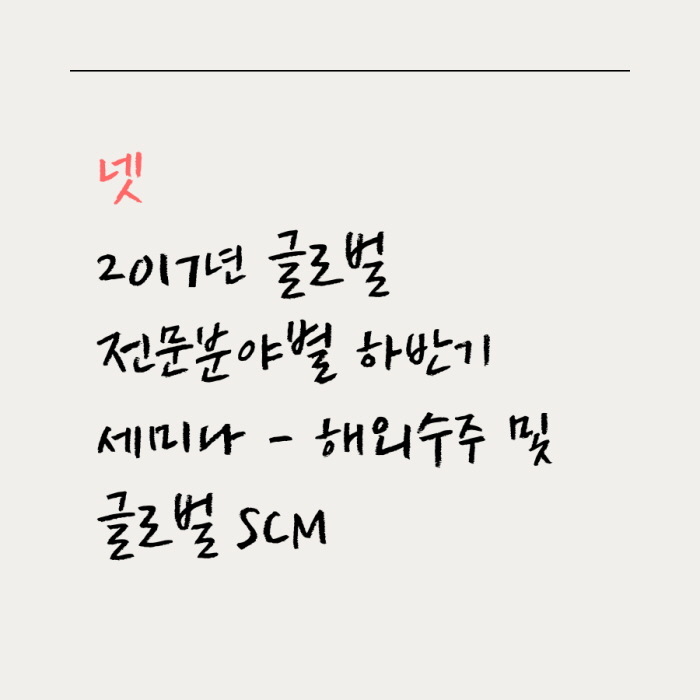 넷
2017년 글로벌
전문분야별 하반기
세미나 - 해외수주 및
글로벌 SCM